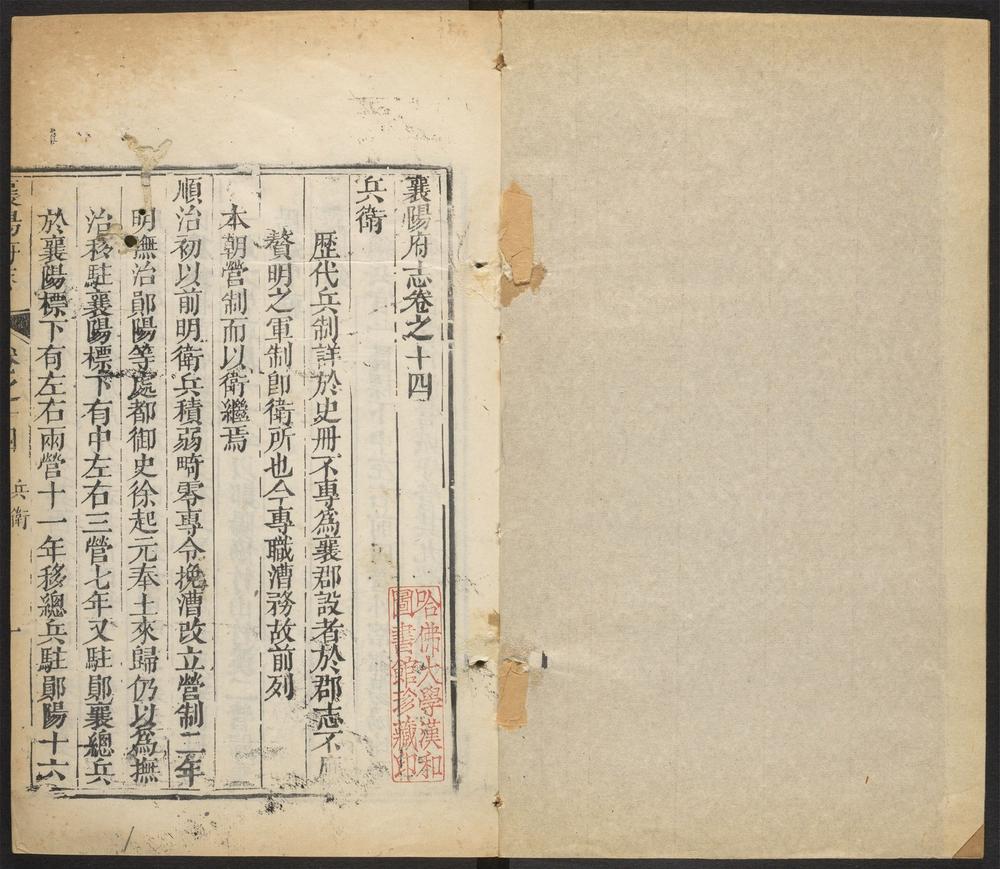 襄陽府志卷之十四
兵衛
歷代兵制詳於史册不專為襄郡設者於郡志不
贅明之軍制卽衛所也今專職漕務故前列
本朝營制而以衛繼焉
順治初以前明衛兵積弱畸零專令挽漕改立營制二年
明撫治鄖陽等處都御史徐起元奉土來歸仍以為撫
治移駐襄陽標下有中左右三營七年又駐鄖襄總兵
於襄陽標下有左右兩營十一年移總兵駐鄖陽十六
兵衛
一
哈佛大學漢和
圖書館珍藏印